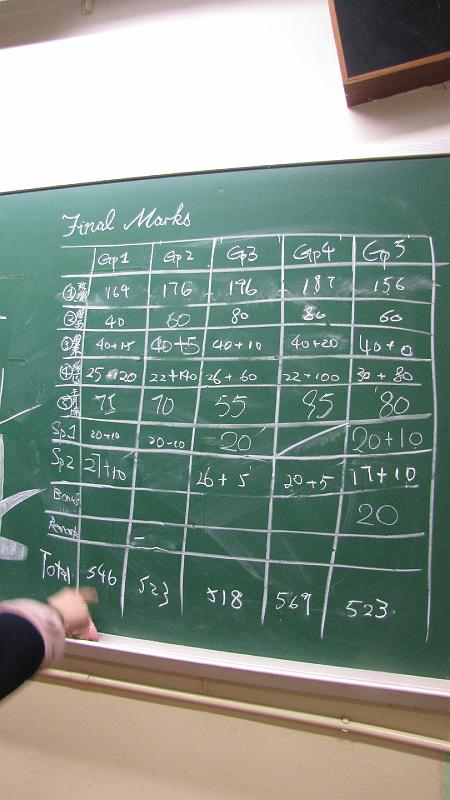 Final Marks
Gp1 Gp2 Gp3 Gp4 Gp5
① 164 176 196 187 156
② 40 60 80 80 60
③ 40+15 40+5 40+10 40+20 40+0
④ 25+120 22+140 26+60 22+100 30+80
⑤ 75 70 55 95 80
Sp1 20+10 20-10 20 20+10
Sp2 27+10 26+5 20+5 17+10
Bonus 20
Remark
Total 546 523 518 569 523